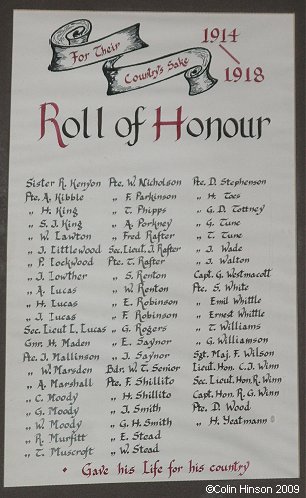 For Their
Country's Sake
1914
1918
Roll of Honour
Sister R. Kenyon
Pte. A. Kibble
„ H. King
„ S. J. King
„ W. Lawton
„ J. Littlewood
„ P. Lockwood
„ J. Lowther
„ A. Lucas
„ H. Lucas
„ J. Lucas
Sec. Lieut L. Lucas
Gnr. H. Maden
Pte. J. Mallinson
„ W. Marsden
„ A. Marshall
„ C. Moody
„ G. Moody
„ W. Moody
„ R. Murfitt
„ T. Muscroft
Pte. W. Nicholson
„ F. Parkinson
„ T. Phipps
„ A. Porkney
„ Fred Rafter
Sec. Lieut. J. Rafter
Pte. T. Rafter
„ S. Renton
„ W. Renton
„ E. Robinson
„ F. Robinson
„ G. Rogers
„ E. Saynor
„ J. Saynor
Bdr. W. T. Senior
Pte. F. Shillito
„ H. Shillito
„ J. Smith
„ G. H. Smith
„ E. Stead
„ W. Stead
Pte. D. Stephenson
„ H. Toes
„ G. D. Tottney
„ G. Tune
„ T. Tune
„ J. Wade
„ J. Walton
Capt. G. Westmacott
Pte. S. White
„ Emil Whittle
„ Ernest Whittle
„ T. Williams
„ G. Williamson
Sgt. Maj. F. Wilson
Lieut. Hon. C. J. Winn
Sec. Lieut. Hon. R. Winn
Capt. Hon. R. G. Winn
Pte. D. Wood
„ H. Yeatmann
• Gave his Life for his country
©Colin Hinson 2009